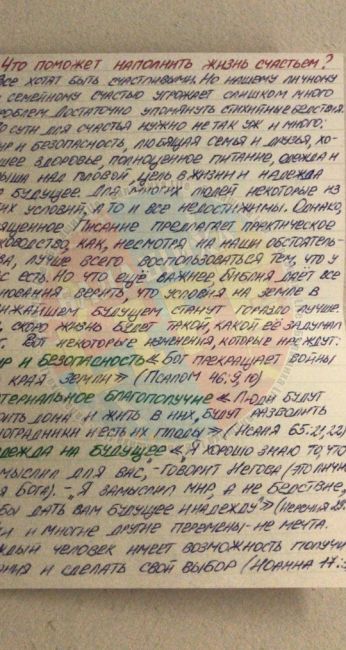 Что поможет наполнить жизнь счастьем?
Все хотят быть счастливыми. Но нашему личному
и семейному счастью угрожает слишком много
проблем. Достаточно упомянуть стихийные бедствия.
По сути для счастья нужно не так уж и много:
мир и безопасность, любящая семья и друзья, хо-
рошее здоровье, полноценное питание, одежда и
крыша над головой, цель в жизни и надежда
на будущее. Для многих людей некоторые из
этих условий, а то и все недостижимы. Однако,
Священное Писание предлагает практическое
руководство, как, несмотря на наши обстоятель-
ства, лучше всего воспользоваться тем, что у
нас есть. Но что ещё важнее, Библия даёт все
основания верить, что условия на земле в
ближайшем будущем станут гораздо лучше.
скоро жизнь будет такой, какой её задумал
Вот некоторые изменения, которые нас ждут:
Мир и безопасность « Бог прекращает войны
края земли» (Псалом 46:9,10)
Материальное благополучие « Люди будут
строить дома и жить в них, будут разводить
виноградники и есть их плоды» (Исаия 65:21,22)
Надежда на будущее « „Я хорошо знаю то, что
замыслил для вас“, - говорит Иегова (это личное
Бога). - „Я замыслил мир, а не бедствие,
чтобы дать вам будущее и надежду“» (Иеремия 29:
и многие другие перемены - не мечта.
Каждый человек имеет возможность получить
знания и сделать свой выбор (Иоанна 17:3